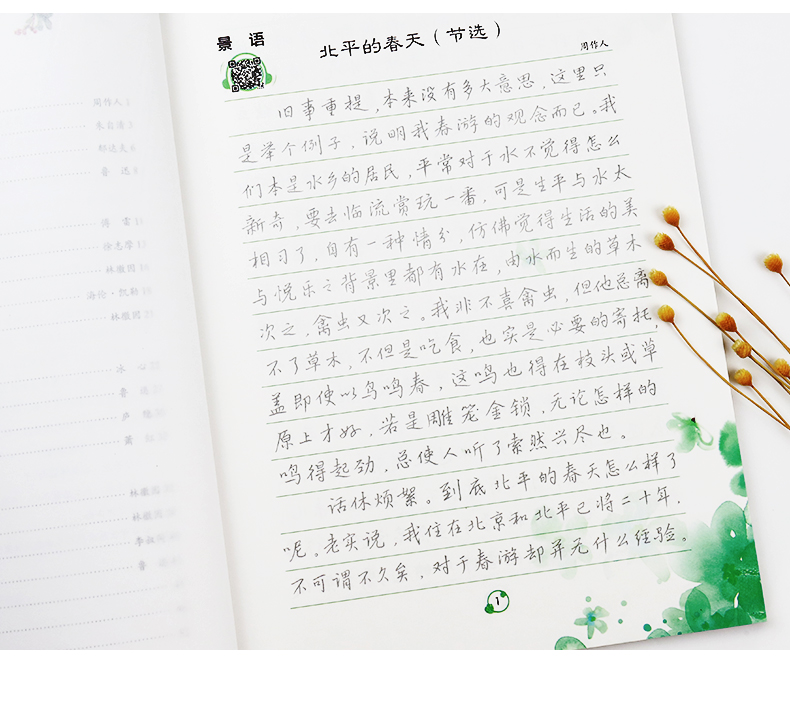 景 语
北平的春天(节选)
周作人
旧事重提,本来没有多大意思,这里只
是举个例子,说明我春游的观念而已。我
们本是水乡的居民,平常对于水不觉得怎么
新奇,要去临流赏玩一番,可是生平与水太
相习了,自有一种情分,仿佛觉得生活的美
与悦乐之背景里都有水在,由水而生的草木
次之,禽虫又次之。我非不喜禽虫,但他总离
不了草木,不但是吃食,也实是必要的寄托,
盖即使以鸟鸣春,这鸣也得在枝头或草
原上才好,若是雕笼金锁,无论怎样的
鸣得起劲,总使人听了索然兴尽也。
话休烦絮。到底北平的春天怎么样了
呢。老实说,我住在北京和北平已将二十年,
不可谓不久矣,对于春游却并无什么经验。
1
周作人 1
朱自清 3
郁达夫 6
鲁 迅
傅 雷
徐志摩
林徽因
海伦·凯勒
林徽因
冰 心
鲁
卢
萧
林徽因
林徽因
李
鲁